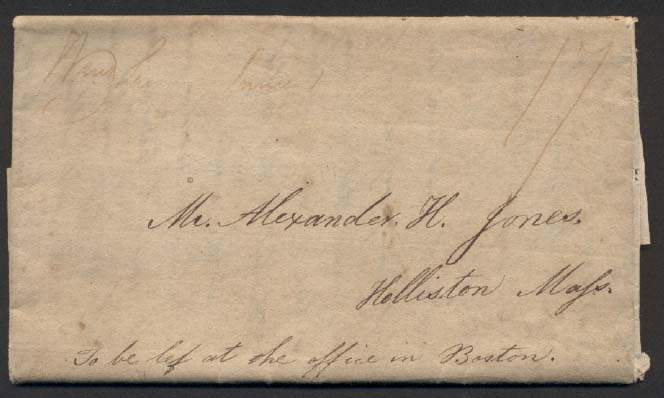 17
Mr. Alexander. H. Jones.
Holliston Maſs.
To be lef at the office in Boston.